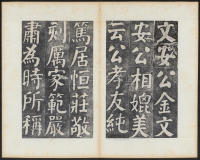 文安公金文
安公相媲美
云公孝友純
篤居恒莊敬
刻厲家範嚴
肅為時所稱